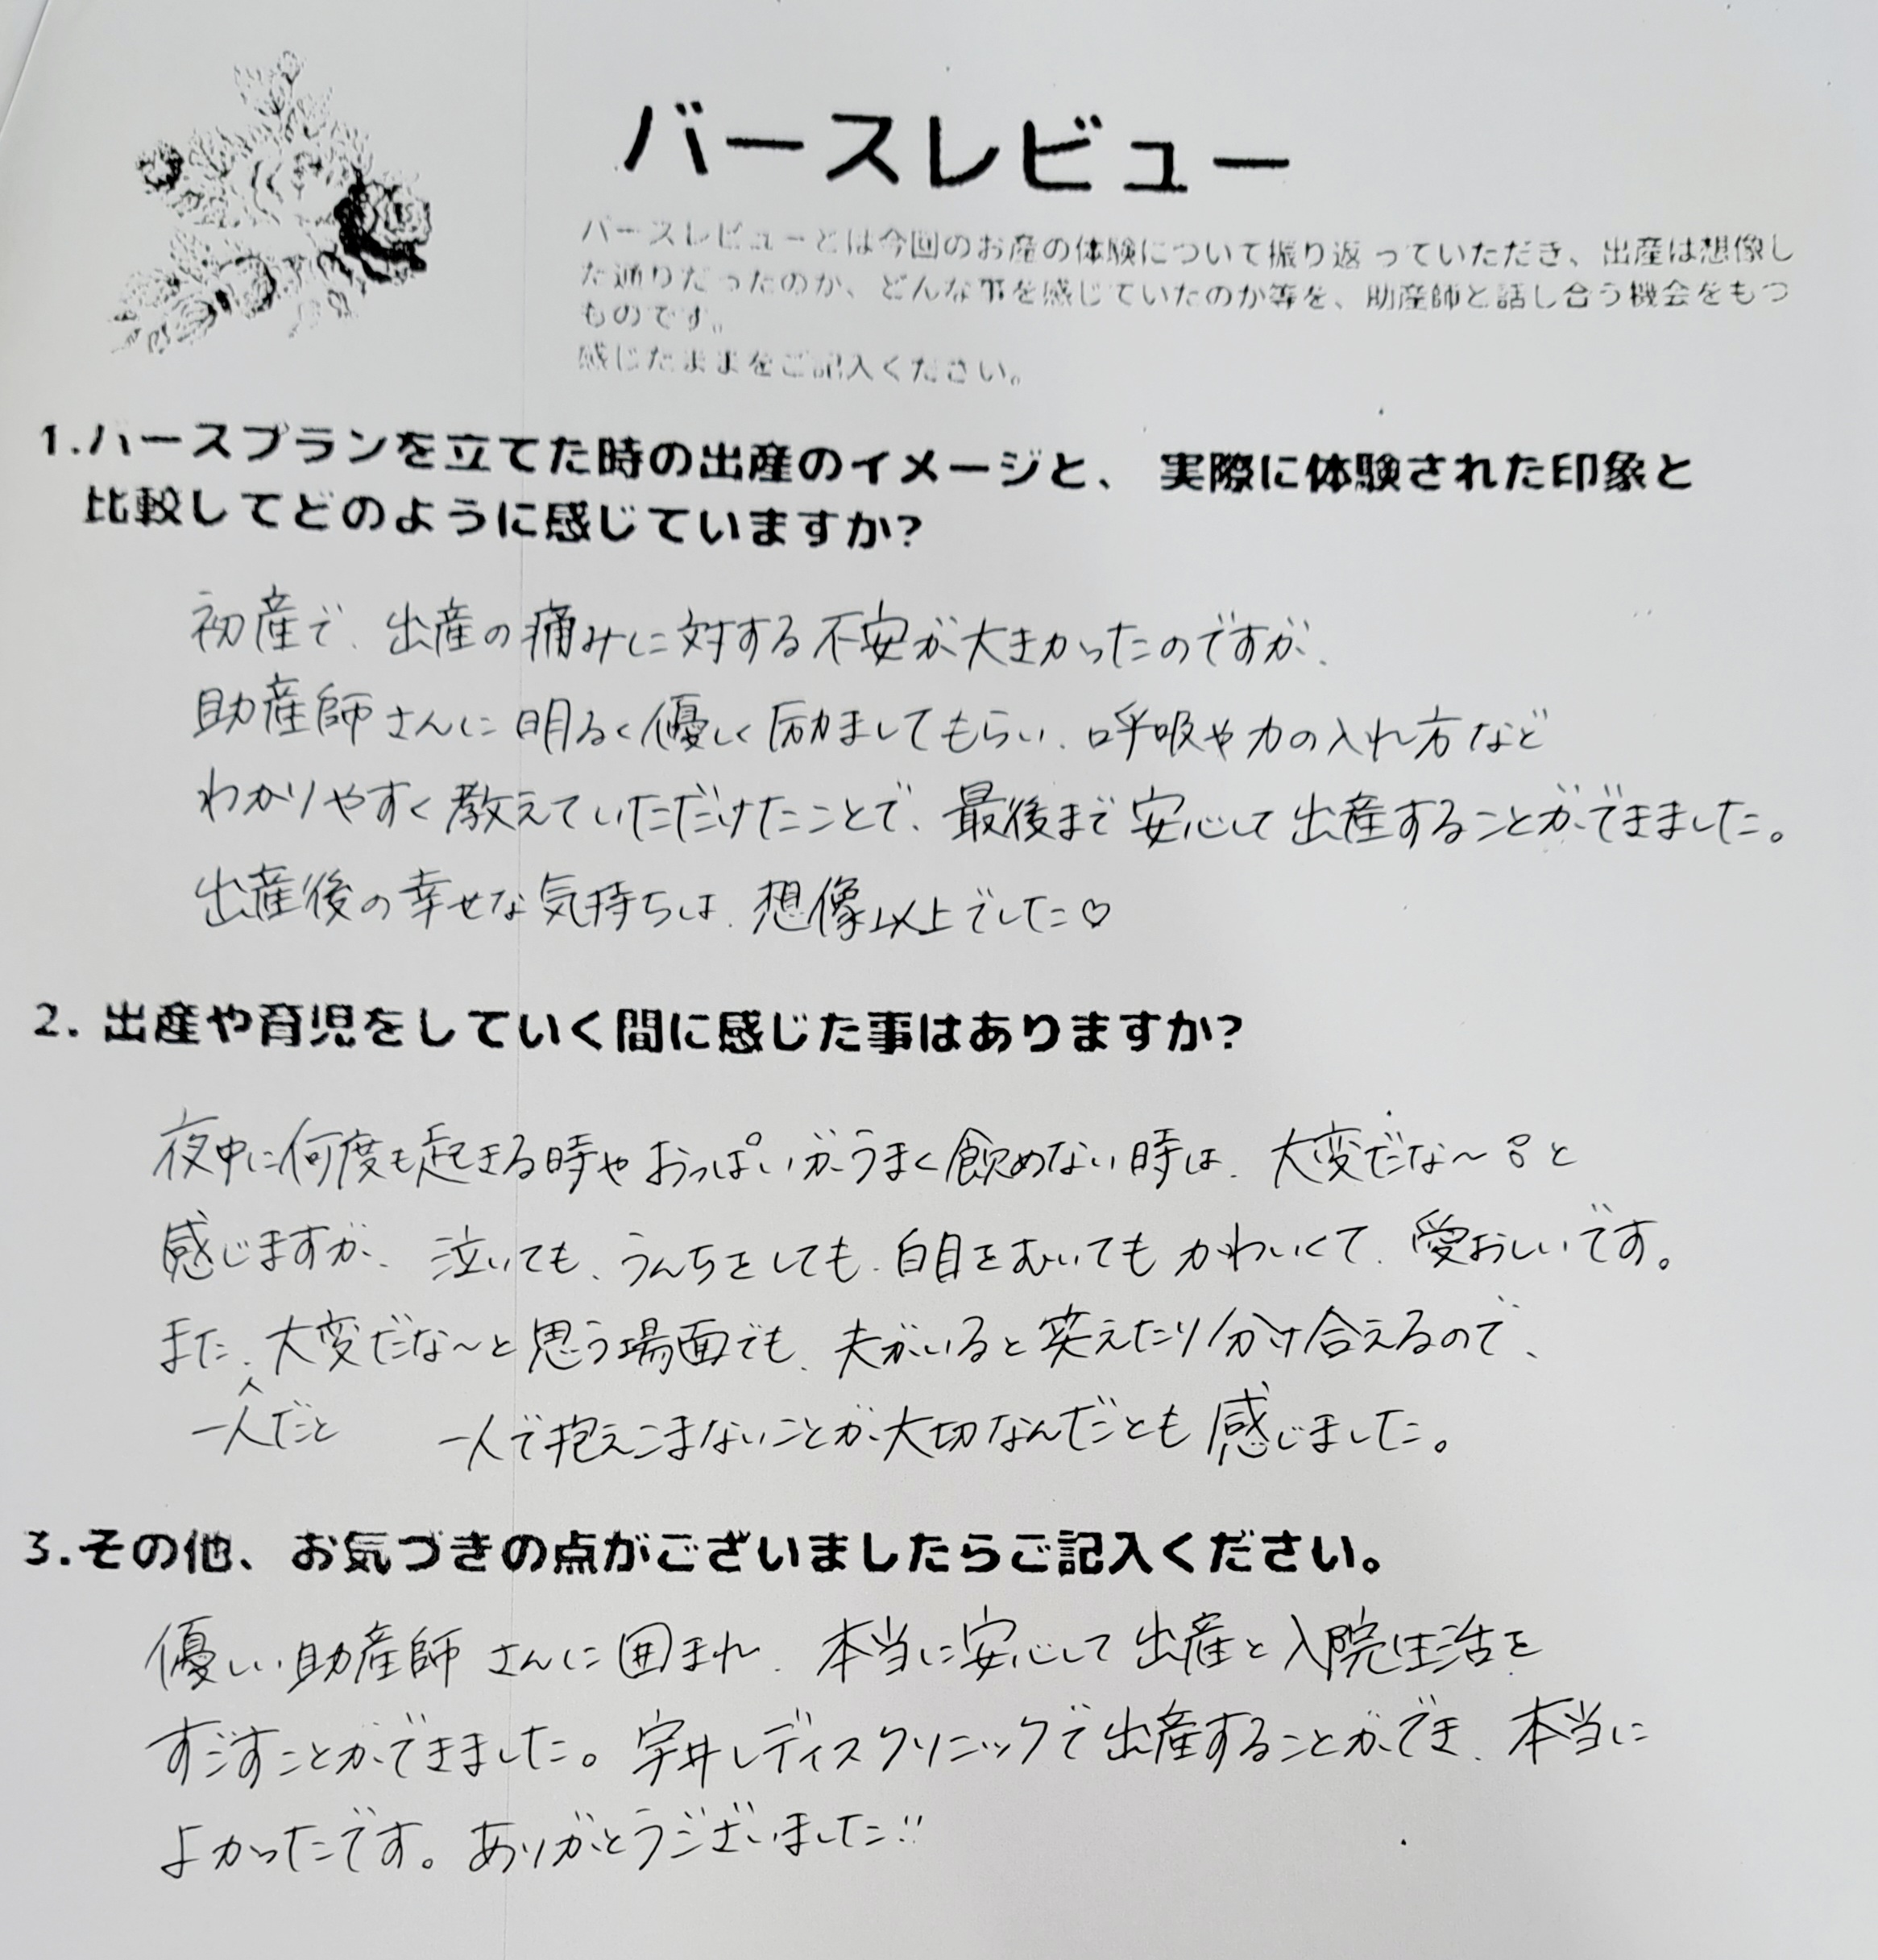 バースレビュー
バースレビューとは今回のお産の体験について振り返っていただき、出産は想像し
た通りだったのか、どんな事を感じていたのか等を、助産師と話し合う機会をもつ
ものです。
感じたままをご記入ください。
1.バースプランを立てた時の出産のイメージと、 実際に体験された印象と
比較してどのように感じていますか?
初産で、出産の痛みに対する不安が大きかったのですが、
助産師さんに明るく優しく励ましてもらい、呼吸や力の入れ方など
わかりやすく教えていただけたことで、最後まで安心して出産することができました。
出産後の幸せな気持ちは、想像以上でした♡
2. 出産や育児をしていく間に感じた事はありますか?
夜中に何度も起きる時やおっぱいがうまく飲めない時は、大変だな〜と
感じますが、泣いても、うんちをしても、白目をむいてもかわいくて、愛おしいです。
また、大変だな〜と思う場面でも、夫がいると笑えたり分け合えるので、
一人だと 一人で抱えこまないことが大切なんだとも感じました。
3.その他、お気づきの点がございましたらご記入ください。
優しい助産師さんに囲まれ、本当に安心して出産と入院生活を
すごすことができました。宇井レディスクリニックで出産することができ、本当に
よかったです。ありがとうございました!!